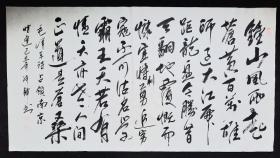 鐘山風雨起
蒼黃百萬雄
師過大江虎
踞龍盤今勝昔
天翻地覆慨而
慷宜將剩勇追窮
寇不可沽名學
霸王天若有
情天亦老人間
正道是滄桑
毛澤東詩占領南京